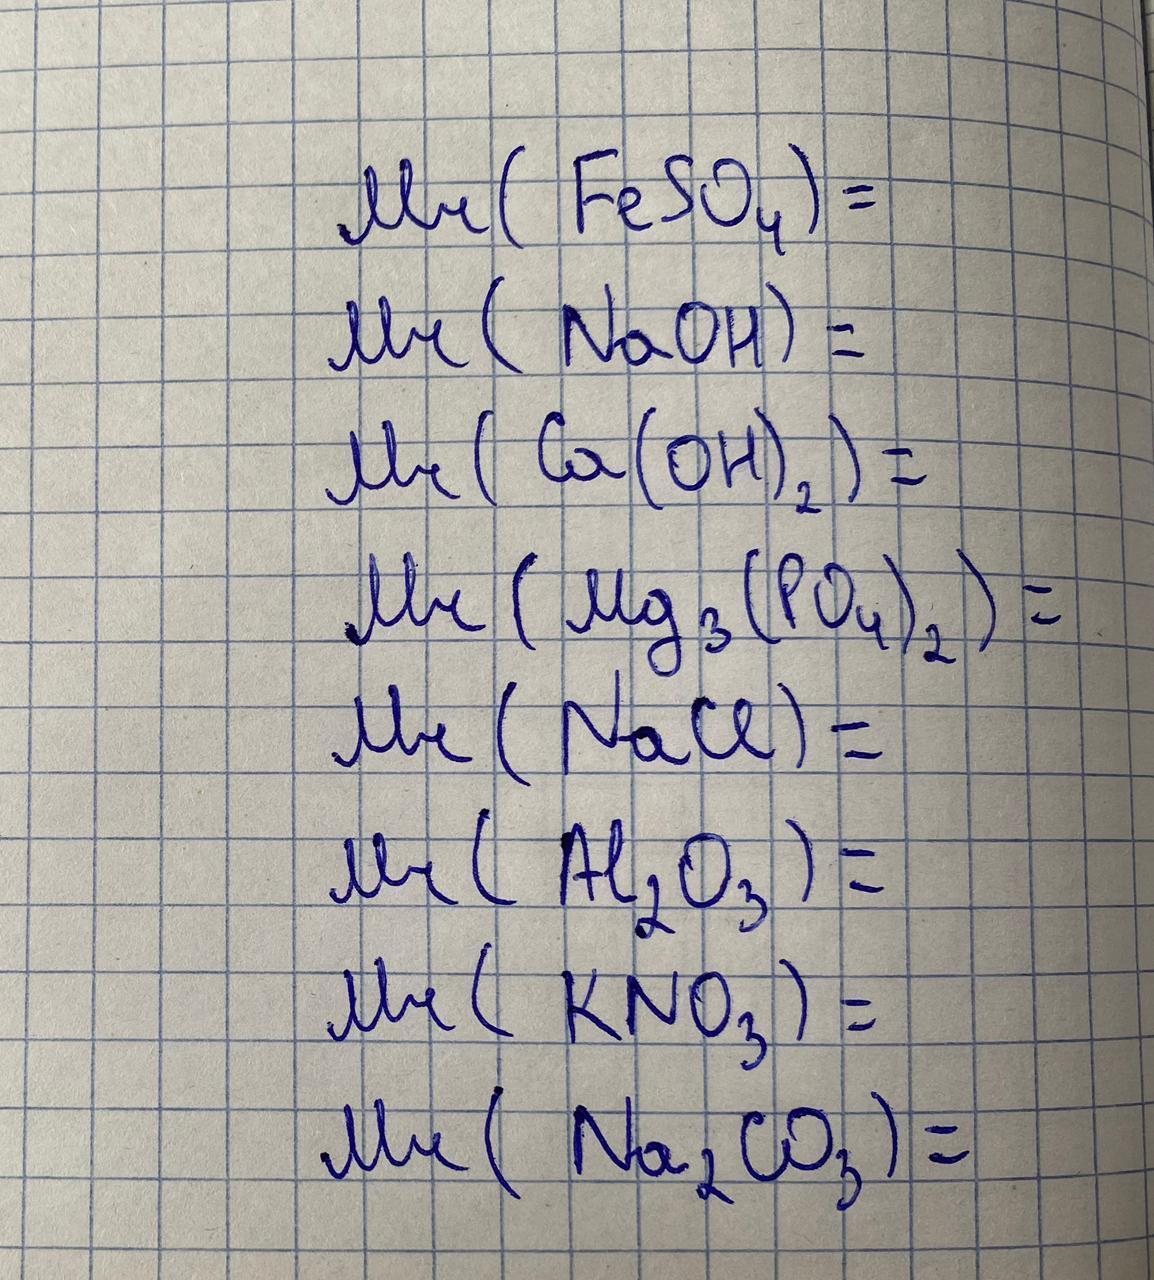 Mr( FeSO₄) =
Mr( NaOH) =
Mr( Ca(OH)₂) =
Mr( Mg₃(PO₄)₂) =
Mr( NaCl) =
Mr( Al₂O₃) =
Mr( KNO₃) =
Mr( Na₂CO₃) =